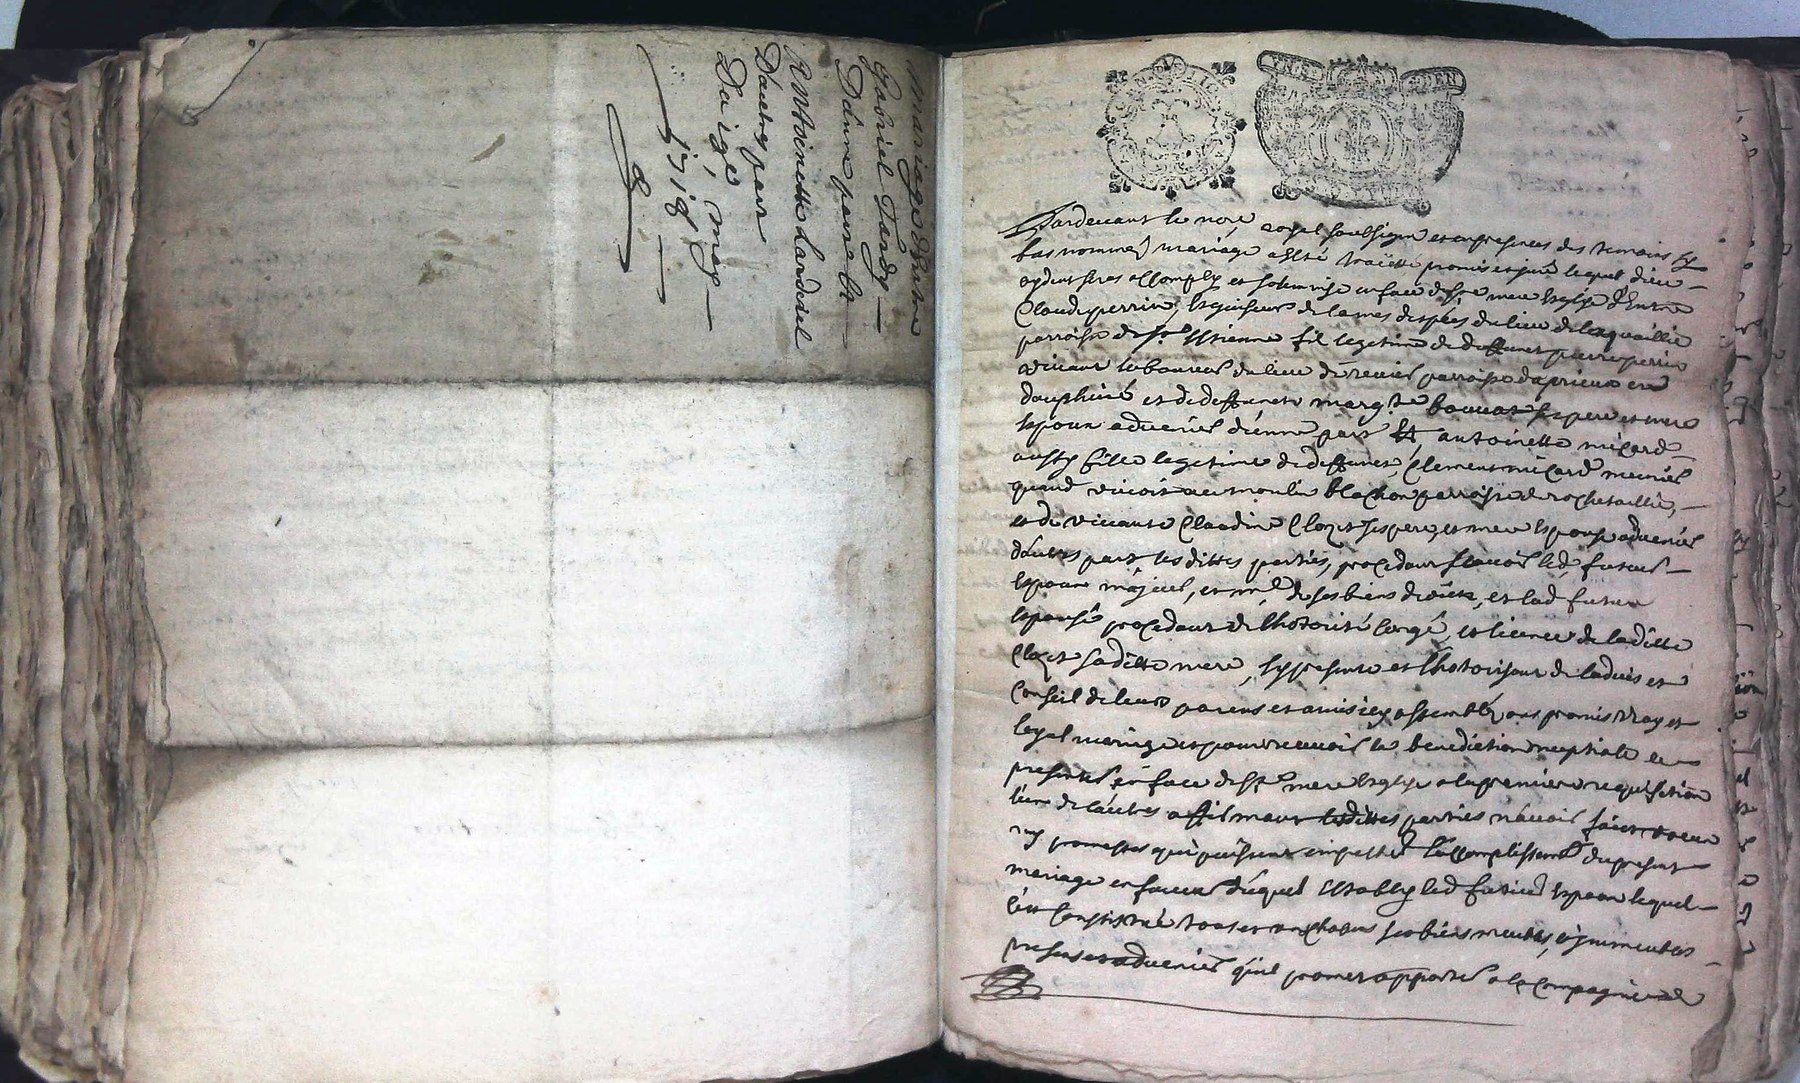 mariage d'entre
Gabriel Tardy
D'une part et
Antoinette Lardelel
Dautre part
Du 19e may
1718
Pardevant le nore royal soubsigne et en presences des temoins cy
bas nommes mariage a esté traitté promis et juré lequel dieu
aydant sera accomply et solemnise en face de ste mere Esglise d'Entre
Claude perrin, Eguiseur de lames despées du lieu de
parroisse de st Estienne fil legitime de deffunct pierre perrin
vivant laboureur du lieu de parroisse daprieux en
dauphiné et de deffuncte margte bonnot ses pere et mere
Espoux advenir d'une part Et antoinette micard
aussy fille legitime de deffunct Clement micard meunier
quand vivoit au moulin blachon parroisse de rochetaillée,
et de vivante Claudine Clozet ses pere et mere Espouse advenir
dautres part, les dittes parties, procedant scavoir led. futur
Espoux majeur, et me de ses biens droicts, et lad. future
Espouse procedant de lhotorité congé, et licence de laditte
Clozet sa ditte mere, Icy presente et lhotorisant de ladvis et
Conseil de leurs parens et amis icy assemblés ont promis vray et
loyal mariage et pour recevoir la benediction nuptiale se
presenter en face de ste mere Esglise a la premiere requisition
lun de lautres affirmant lesdittes parties n'avoir faict voeux
ny promesses qui puissent empecher laccomplissement du present
mariage en faveur duquel Estably led. futur Espoux lequel
sest constitué tous et un chacuns ses biens meubles, et immeubles
presens et advenir quil promet apporter a la Compagnie de